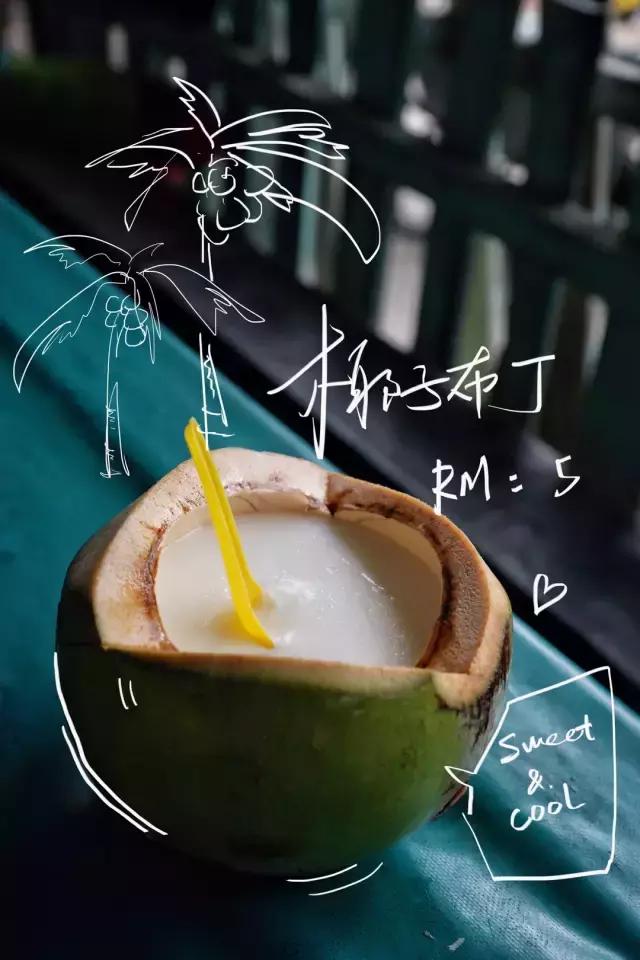 椰子布丁
RM = 5
Sweet
&
COOL